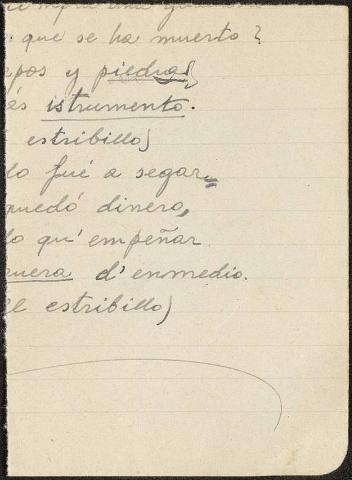 que se ha muerto?
pos y piedras
és istrumento.
estribillo)
do fué a segar
quedó dinero,
do qu'empeñar
uera d'enmedio.
el estribillo)